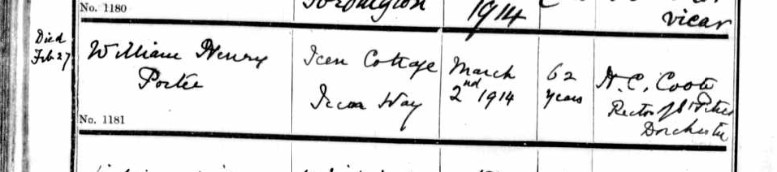 No. 1180
Fordington
1914
vicar
Died
Feb 27
William Henry
Porter
Icen Cottage
Icen Way
March
2nd 1914
62
years
H. C. Coote
Rector of St Peter
Dorchester
No. 1181